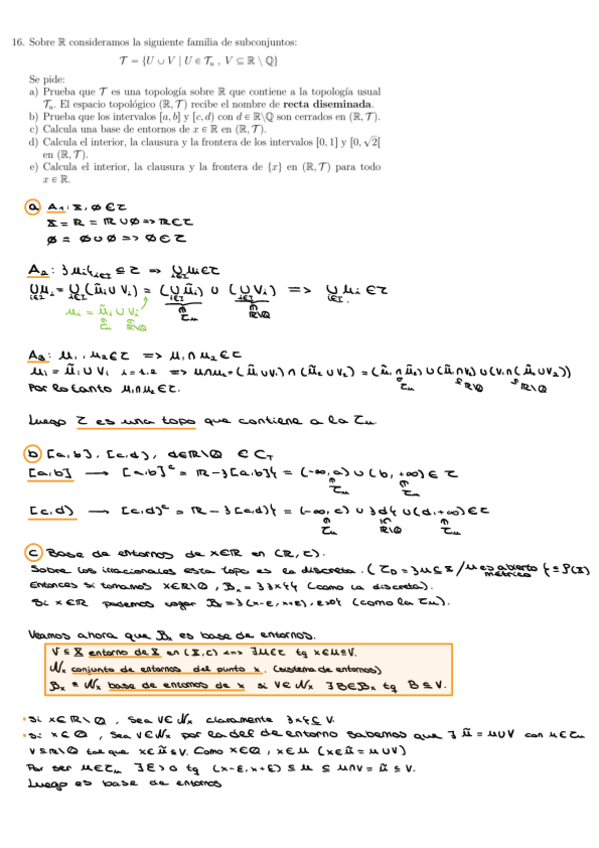 16. Sobre ℝ consideramos la siguiente familia de subconjuntos:
𝒯 = {U ∪ V | U ∈ 𝒯ᵤ , V ⊆ ℝ \ ℚ}
Se pide:
a) Prueba que 𝒯 es una topología sobre ℝ que contiene a la topología usual
𝒯ᵤ. El espacio topológico (ℝ, 𝒯) recibe el nombre de recta diseminada.
b) Prueba que los intervalos [a, b] y [c, d) con d ∈ ℝ\ℚ son cerrados en (ℝ, 𝒯).
c) Calcula una base de entornos de x ∈ ℝ en (ℝ, 𝒯).
d) Calcula el interior, la clausura y la frontera de los intervalos [0, 1] y [0, √2[
en (ℝ, 𝒯).
e) Calcula el interior, la clausura y la frontera de {x} en (ℝ, 𝒯) para todo
x ∈ ℝ.
a A₁: X, ∅ ∈ τ
X = ℝ = ℝ ∪ ∅ => ℝ ∈ τ
∅ = ∅ ∪ ∅ => ∅ ∈ τ
A₂: {Uᵢ}ᵢ∈I ⊆ τ => ∪ᵢ∈I Uᵢ ∈ τ
∪ᵢ∈I Uᵢ = ∪ᵢ∈I (Ũᵢ ∪ Vᵢ) = (∪ᵢ∈I Ũᵢ) ∪ (∪ᵢ∈I Vᵢ) => ∪ᵢ∈I Uᵢ ∈ τ
Uᵢ = Ũᵢ ∪ Vᵢ τᵤ ℝ\ℚ
A₃: U₁, U₂ ∈ τ => U₁ ∩ U₂ ∈ τ
Uᵢ = Ũᵢ ∪ Vᵢ i = 1,2 => U₁∩U₂ = (Ũ₁ ∪ V₁) ∩ (Ũ₂ ∪ V₂) = (Ũ₁ ∩ Ũ₂) ∪ (Ũ₁∩V₂) ∪ (V₁∩(Ũ₂∪V₂))
τᵤ ℝ\ℚ ℝ\ℚ
Por lo tanto U₁∩U₂ ∈ τ.
Luego τ es una topo que contiene a la τᵤ.
b [a,b], [c,d), d∈ℝ\ℚ ∈ C_T
[a,b] → [a,b]ᶜ = ℝ - {[a,b]} = (-∞,a) ∪ (b,+∞) ∈ τ
τᵤ τᵤ
[c,d) → [c,d)ᶜ = ℝ - {[c,d)} = (-∞,c) ∪ {d} ∪ (d,+∞) ∈ τ
τᵤ ℝ\ℚ τᵤ
c Base de entornos de x∈ℝ en (ℝ, τ).
Sobre los irracionales esta topo es la discreta. (τ_D = {U ⊆ X / U es abierto métrico} = P(X))
Entonces si tomamos x∈ℝ\ℚ, Bₓ = {{x}} (como la discreta).
Si x∈ℝ podemos coger Bₓ = {(x-ε, x+ε), ε>0} (como la τᵤ).
Veamos ahora que Bₓ es base de entornos.
V ⊆ X entorno de X en (X,τ) <=> ∃U∈τ tq x∈U⊆V.
𝒩ₓ conjunto de entornos del punto x. (sistema de entornos)
Bₓ ⊆ 𝒩ₓ base de entornos de x si V∈𝒩ₓ ∃B∈Bₓ tq B ⊆ V.
• Si x∈ℝ\ℚ, sea V∈𝒩ₓ claramente {x} ⊆ V.
• Si x∈ℚ, sea V∈𝒩ₓ por la def de entorno sabemos que ∃ Ũ = U∪V con U∈τᵤ
V⊆ℝ\ℚ tal que x∈Ũ⊆V. Como x∈ℚ, x∈U (x∈Ũ = U∪V)
Por ser U∈τᵤ ∃ε>0 tq (x-ε, x+ε) ⊆ U ⊆ U∩V = Ũ ⊆ V.
Luego es base de entornos